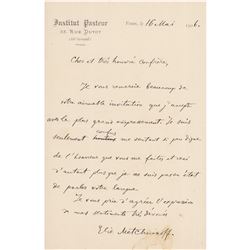 Institut Pasteur
25, Rue Dutot
Paris, le 16 Mai 1906.
Cher et très honoré confrère,
Je vous remercie beaucoup de
votre aimable invitation que j'accepte
avec le plus grand empressement. Je suis
confus
seulement honteux me sentant si peu digne
de l'honneur que vous me faites et ceci
d'autant plus que je ne suis pas en état
de parler votre langue.
Je vous prie d'agréer l'expression
de mes sentiments très dévoués
Elie Metchnikoff